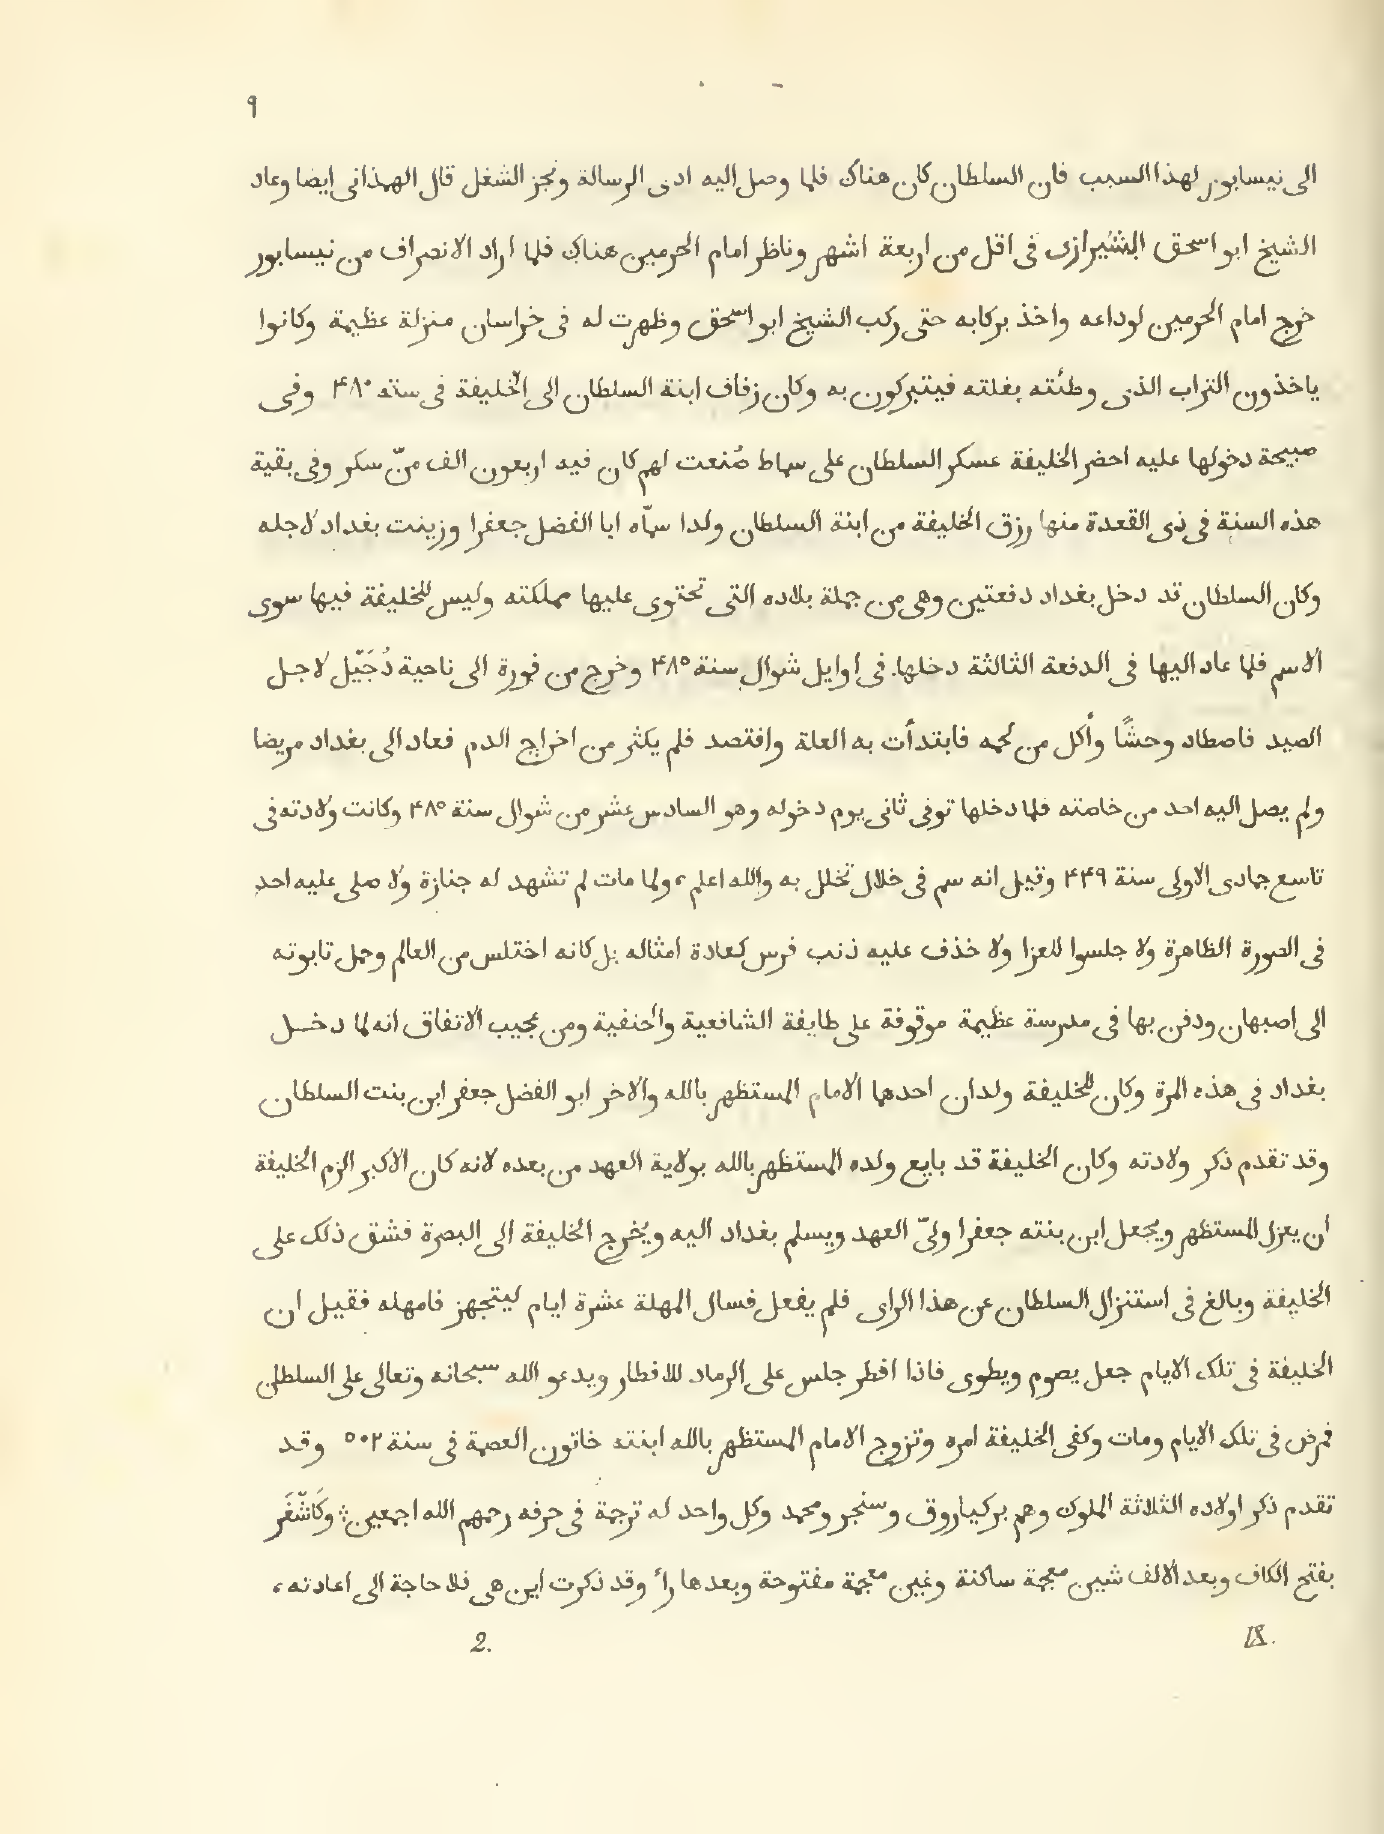 ٩
الى نيسابور لهذا السبب فان السلطان كان هناك فلما وصل اليه ادى الرسالة ونجز الشغل قال الهمذانى ايضا وعاد
الشيخ ابو اسحق الشيرازى فى اقل من اربعة اشهر وناظر امام الحرمين هناك فلما اراد الانصراف من نيسابور
خرج امام الحرمين لوداعه واخذ بركابه حتى ركب الشيخ ابو اسحق وظهرت له فى خراسان منزلة عظيمة وكانوا
ياخذون التراب الذى وطئته بغلته فيتبركون به وكان زفاف ابنة السلطان الى الخليفة فى سنة ۴۸۰ وفى
صبيحة دخولها عليه احضر الخليفة عسكر السلطان على سماط صُنعت لهم كان فيه اربعون الف منّ سكر وفى بقية
هذه السنة فى ذى القعدة منها رزق الخليفة من ابنة السلطان ولدا سمّاه ابا الفضل جعفرا وزينت بغداد لاجله
وكان السلطان قد دخل بغداد دفعتين وهى من جملة بلاده التى تحتوى عليها مملكته وليس للخليفة فيها سوى
الاسم فلما عاد اليها فى الدفعة الثالثة دخلها فى اوايل شوال سنة ۴۸۵ وخرج من فورة الى ناحية دُجَيّل لاجل
الصيد فاصطاد وحشًا وأكل من لحمه فابتدأت به العلة وافتصد فلم يكثر من اخراج الدم فعاد الى بغداد مريضا
ولم يصل اليه احد من خاصته فلما دخلها توفى ثانى يوم دخوله وهو السادس عشر من شوال سنة ۴۸۵ وكانت ولادته فى
تاسع جمادى الاولى سنة ۴۴۹ وقيل انه سم فى خلال تخلل به والله اعلم، ولما مات لم تشهد له جنازة ولا صلى عليه احد
فى الصورة الظاهرة ولا جلسوا للعزا ولا خذف عليه ذنب فرس كعادة امثاله بل كانه اختلس من العالم وحمل تابوته
الى اصبهان ودفن بها فى مدرسة عظيمة موقوفة على طايفة الشافعية والحنفية ومن عجيب الاتفاق انه لما دخل
بغداد فى هذه المرة وكان للخليفة ولدان احدهما الامام المستظهر بالله والاخر ابو الفضل جعفر ابن بنت السلطان
وقد تقدم ذكر ولادته وكان الخليفة قد بايع ولده المستظهر بالله بولاية العهد من بعده لانه كان الاكبر الزم الخليفة
أن يعزل المستظهر ويجعل ابن بنته جعفرا ولىّ العهد ويسلم بغداد اليه ويخرج الخليفة الى البصرة فشق ذلك على
الخليفة وبالغ فى استنزال السلطان عن هذا الراى فلم يفعل فسال المهلة عشرة ايام ليتجهز فامهله فقيل ان
الخليفة فى تلك الايام جعل يصوم ويطوى فاذا افطر جلس على الرماد للافطار ويدعو الله سبحانه وتعالى على السلطان
فمرض فى تلك الايام ومات وكفى الخليفة امره وتزوج الامام المستظهر بالله ابنته خاتون العصمة فى سنة ۵۰۲ وقد
تقدم ذكر اولاده الثلاثة الملوك وهم بركياروق وسنجر ومحمد وكل واحد له ترجمة فى حرفه رحمهم الله اجمعين؛ وكَاشْغَر
بفتح الكاف وبعد الالف شين معجمة ساكنة وغين معجمة مفتوحة وبعدها رأ وقد ذكرت اين هى فلا حاجة الى اعادته،
IX. 2.